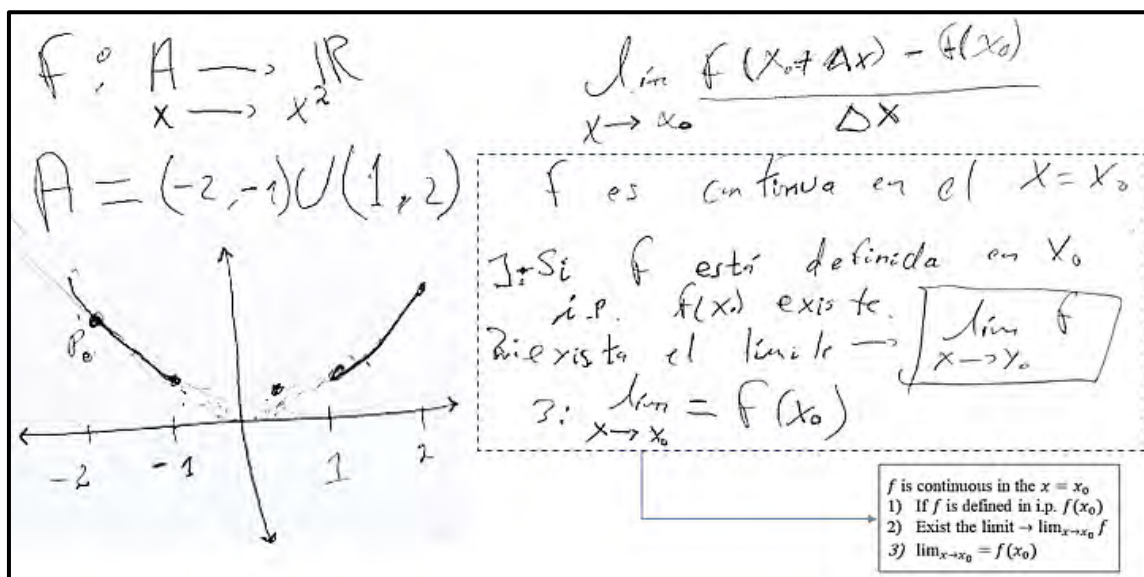 f: A → ℝ
x → x²
A = (-2,-1)∪(1,2)
P₀
-2 -1 1 2
lím f(x₀+Δx) - f(x₀)
x→x₀ Δx
f es continua en el x=x₀
1: Si f está definida en x₀
i.p. f(x₀) existe.
2: exista el límite → lím f
x→x₀
3: lím = f(x₀)
x→x₀
f is continuous in the x = x₀
1) If f is defined in i.p. f(x₀)
2) Exist the limit → limₓ→ₓ₀ f
3) limₓ→ₓ₀ = f(x₀)